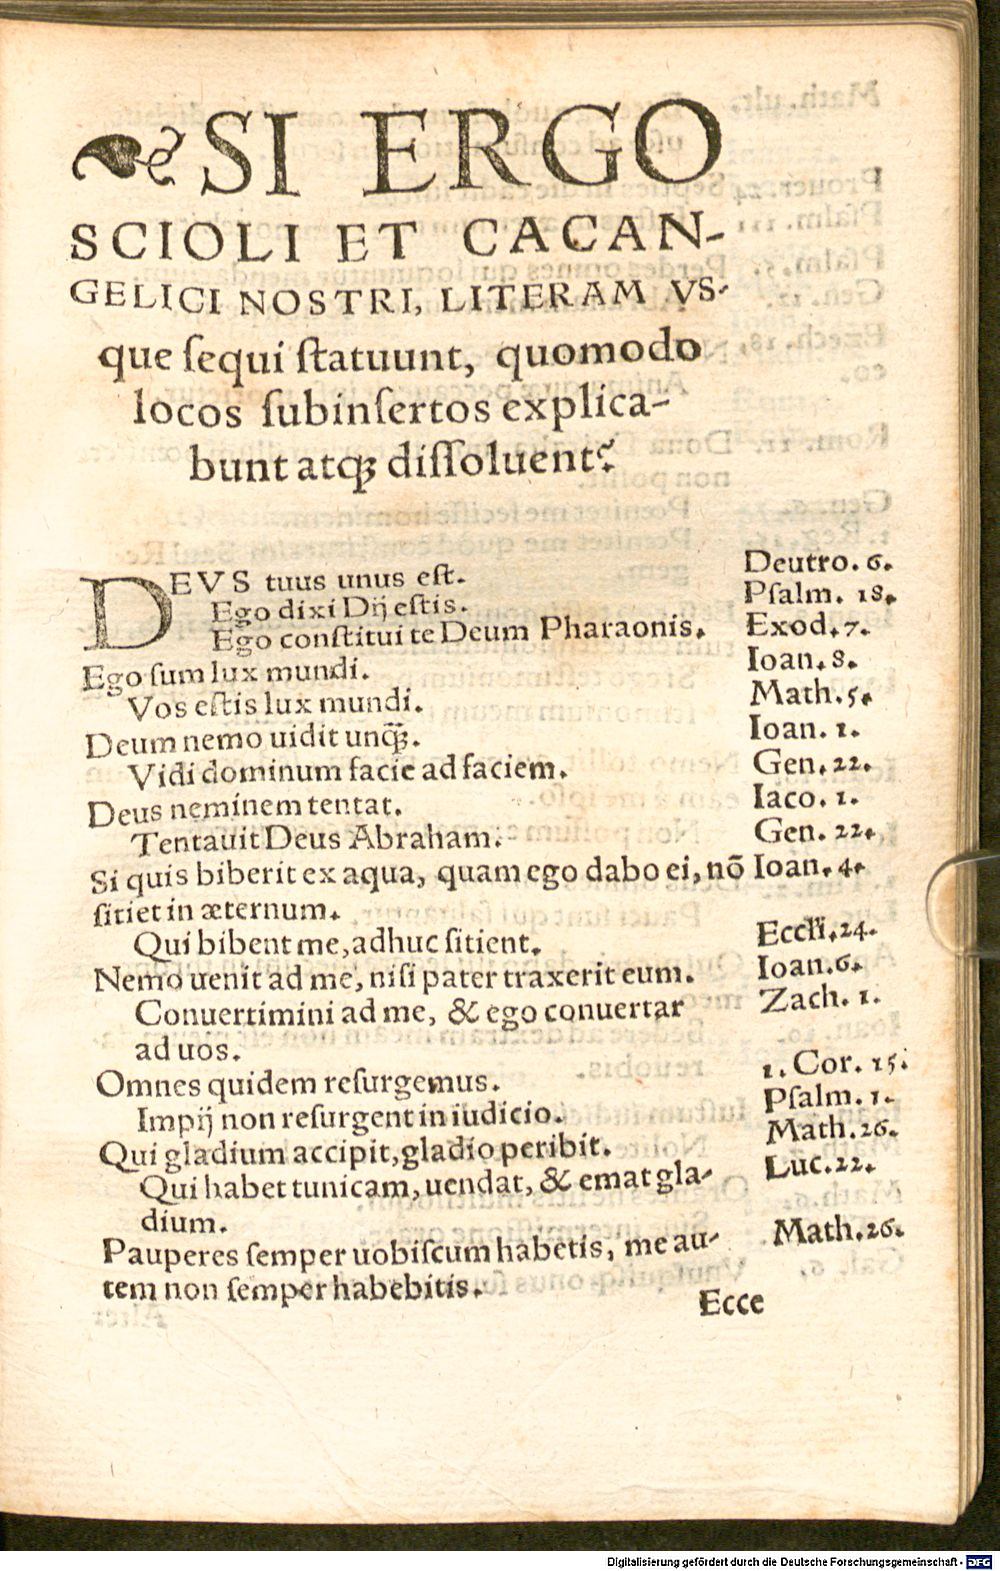 ❧ SI ERGO
SCIOLI ET CACAN-
GELICI NOSTRI, LITERAM VS-
que ſequi ſtatuunt, quomodo
locos ſubinſertos explica-
bunt atqꝫ diſſoluent?
DEVS tuus unus eſt. Deutro. 6.
Ego dixi Dij eſtis. Pſalm. 18.
Ego conſtitui te Deum Pharaonis. Exod. 7.
Ego ſum lux mundi. Ioan. 8.
Vos eſtis lux mundi. Math. 5.
Deum nemo uidit unq̃ꝫ. Ioan. 1.
Vidi dominum facie ad faciem. Gen. 22.
Deus neminem tentat. Iaco. 1.
Tentauit Deus Abraham. Gen. 22.
Si quis biberit ex aqua, quam ego dabo ei, nõ Ioan. 4.
ſitiet in æternum.
Qui bibent me, adhuc ſitient. Eccli. 24.
Nemo uenit ad me, niſi pater traxerit eum. Ioan. 6.
Conuertimini ad me, & ego conuertar Zach. 1.
ad uos.
Omnes quidem reſurgemus. 1. Cor. 15.
Impij non reſurgent in iudicio. Pſalm. 1.
Qui gladium accipit, gladio peribit. Math. 26.
Qui habet tunicam, uendat, & emat gla- Luc. 22.
dium.
Pauperes ſemper uobiſcum habetis, me au- Math. 26.
tem non ſemper habebitis.
Ecce
Digitalisierung gefördert durch die Deutsche Forschungsgemeinschaft - DFG